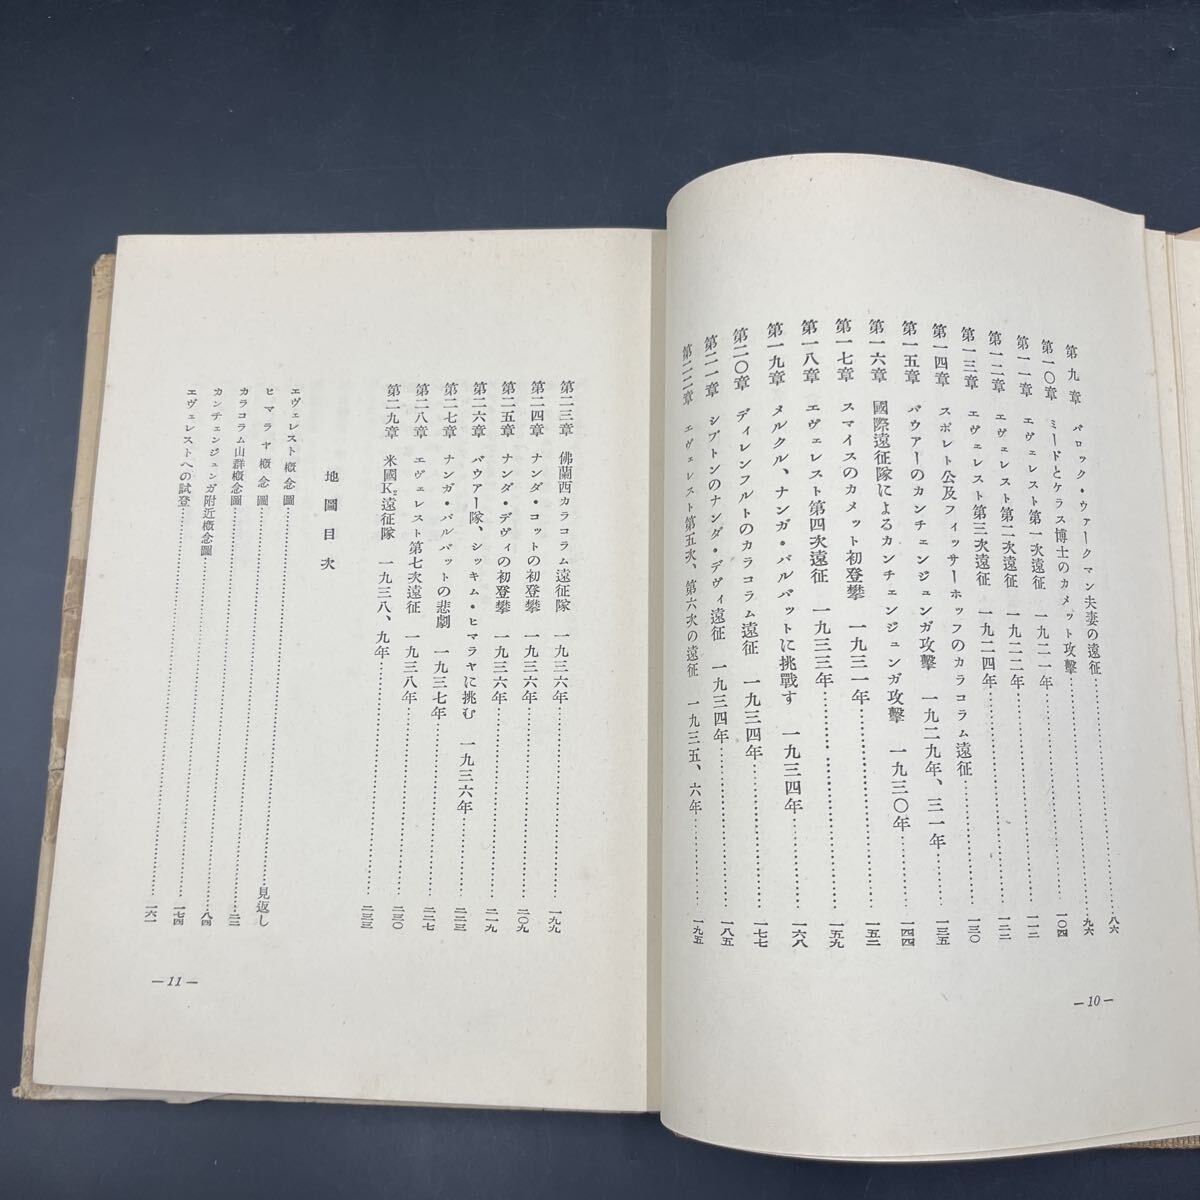 第九章 バロック・ウァークマン夫妻の遠征……八六
第一〇章 ミードとケラス博士のカメット攻擊……九六
第一一章 エヴェレスト第一次遠征 一九二一年……一〇四
第一二章 エヴェレスト第二次遠征 一九二二年……一一二
第一三章 エヴェレスト第三次遠征 一九二四年……一二二
第一四章 スポレト公及フィッサーホッフのカラコラム遠征……一三〇
第一五章 バウアーのカンチェンジュンガ攻擊 一九二九年、三一年……一三五
第一六章 國際遠征隊によるカンチェンジュンガ攻擊 一九三〇年……一四四
第一七章 スマイスのカメット初登攀 一九三一年……一五二
第一八章 エヴェレスト第四次遠征 一九三三年……一五九
第一九章 メルクル、ナンガ・バルバットに挑戰す 一九三四年……一六八
第二〇章 ディレンフルトのカラコラム遠征 一九三四年……一七七
第二一章 シプトンのナンダ・デヴィ遠征 一九三四年……一八五
第二二章 エヴェレスト第五次、第六次の遠征 一九三五、六年……一九五
—10—
第二三章 佛蘭西カラコラム遠征隊 一九三六年……一九九
第二四章 ナンダ・コットの初登攀 一九三六年……二〇九
第二五章 ナンダ・デヴィの初登攀 一九三六年……二一九
第二六章 バウアー隊、シッキム・ヒマラヤに挑む 一九三六年……二二三
第二七章 ナンガ・バルバットの悲劇 一九三七年……二二七
第二八章 エヴェレスト第七次遠征 一九三八年……二三〇
第二九章 米國K2遠征隊 一九三八、九年……二三三
地圖目次
エヴェレスト槪念圖……見返し
ヒマラヤ槪念圖……二二
カラコラム山群槪念圖……八四
カンチェンジュンガ附近槪念圖……一七四
エヴェレストへの試登……一六一
—11—